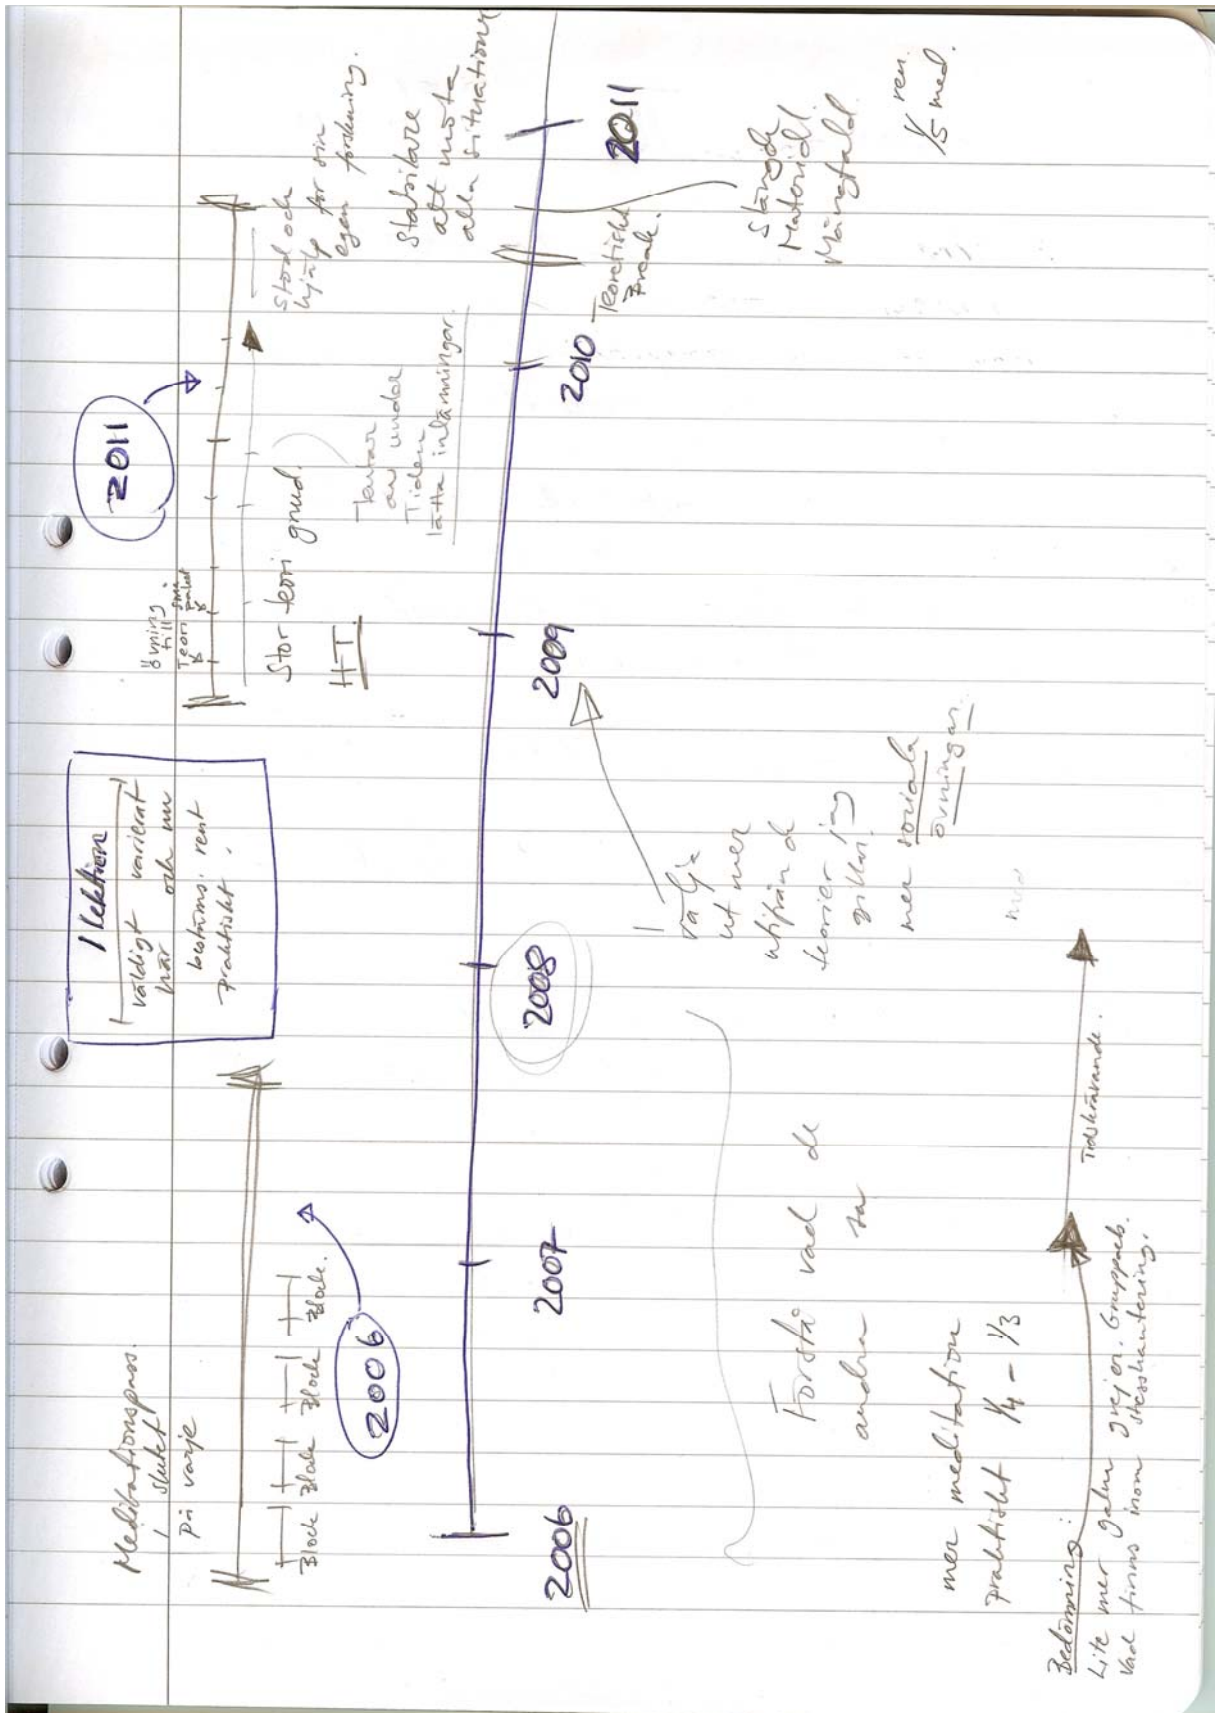 Meditationspass.
i slutet
på varje
Block Block Block Block.
2006
1 lektion
väldigt varierat
här och nu
bestäms rent
praktiskt.
övning
till
Teori små
paket
2011
Stor teori grund.
HT.
Tentor
av under
Tiden
lätta inlämningar.
Stöd och
hjälp för sin
egen forskning.
Stabilare
att möta
alla situationer
2006 2007 2008 2009 2010 2011
Teoretiskt
Break.
Stängde
Material.
Mångfald.
1/5 ren.
med.
välja
ut mer
utifrån de
teorier jag
gillar.
mer sociala
övningar.
med
Förstå vad de
andra sa
mer meditation
praktiskt 1/4 - 1/3
Bedömning:
Lite mer galna grejer. Grupparb.
Vad finns inom stresshantering.
Tidskrävande.